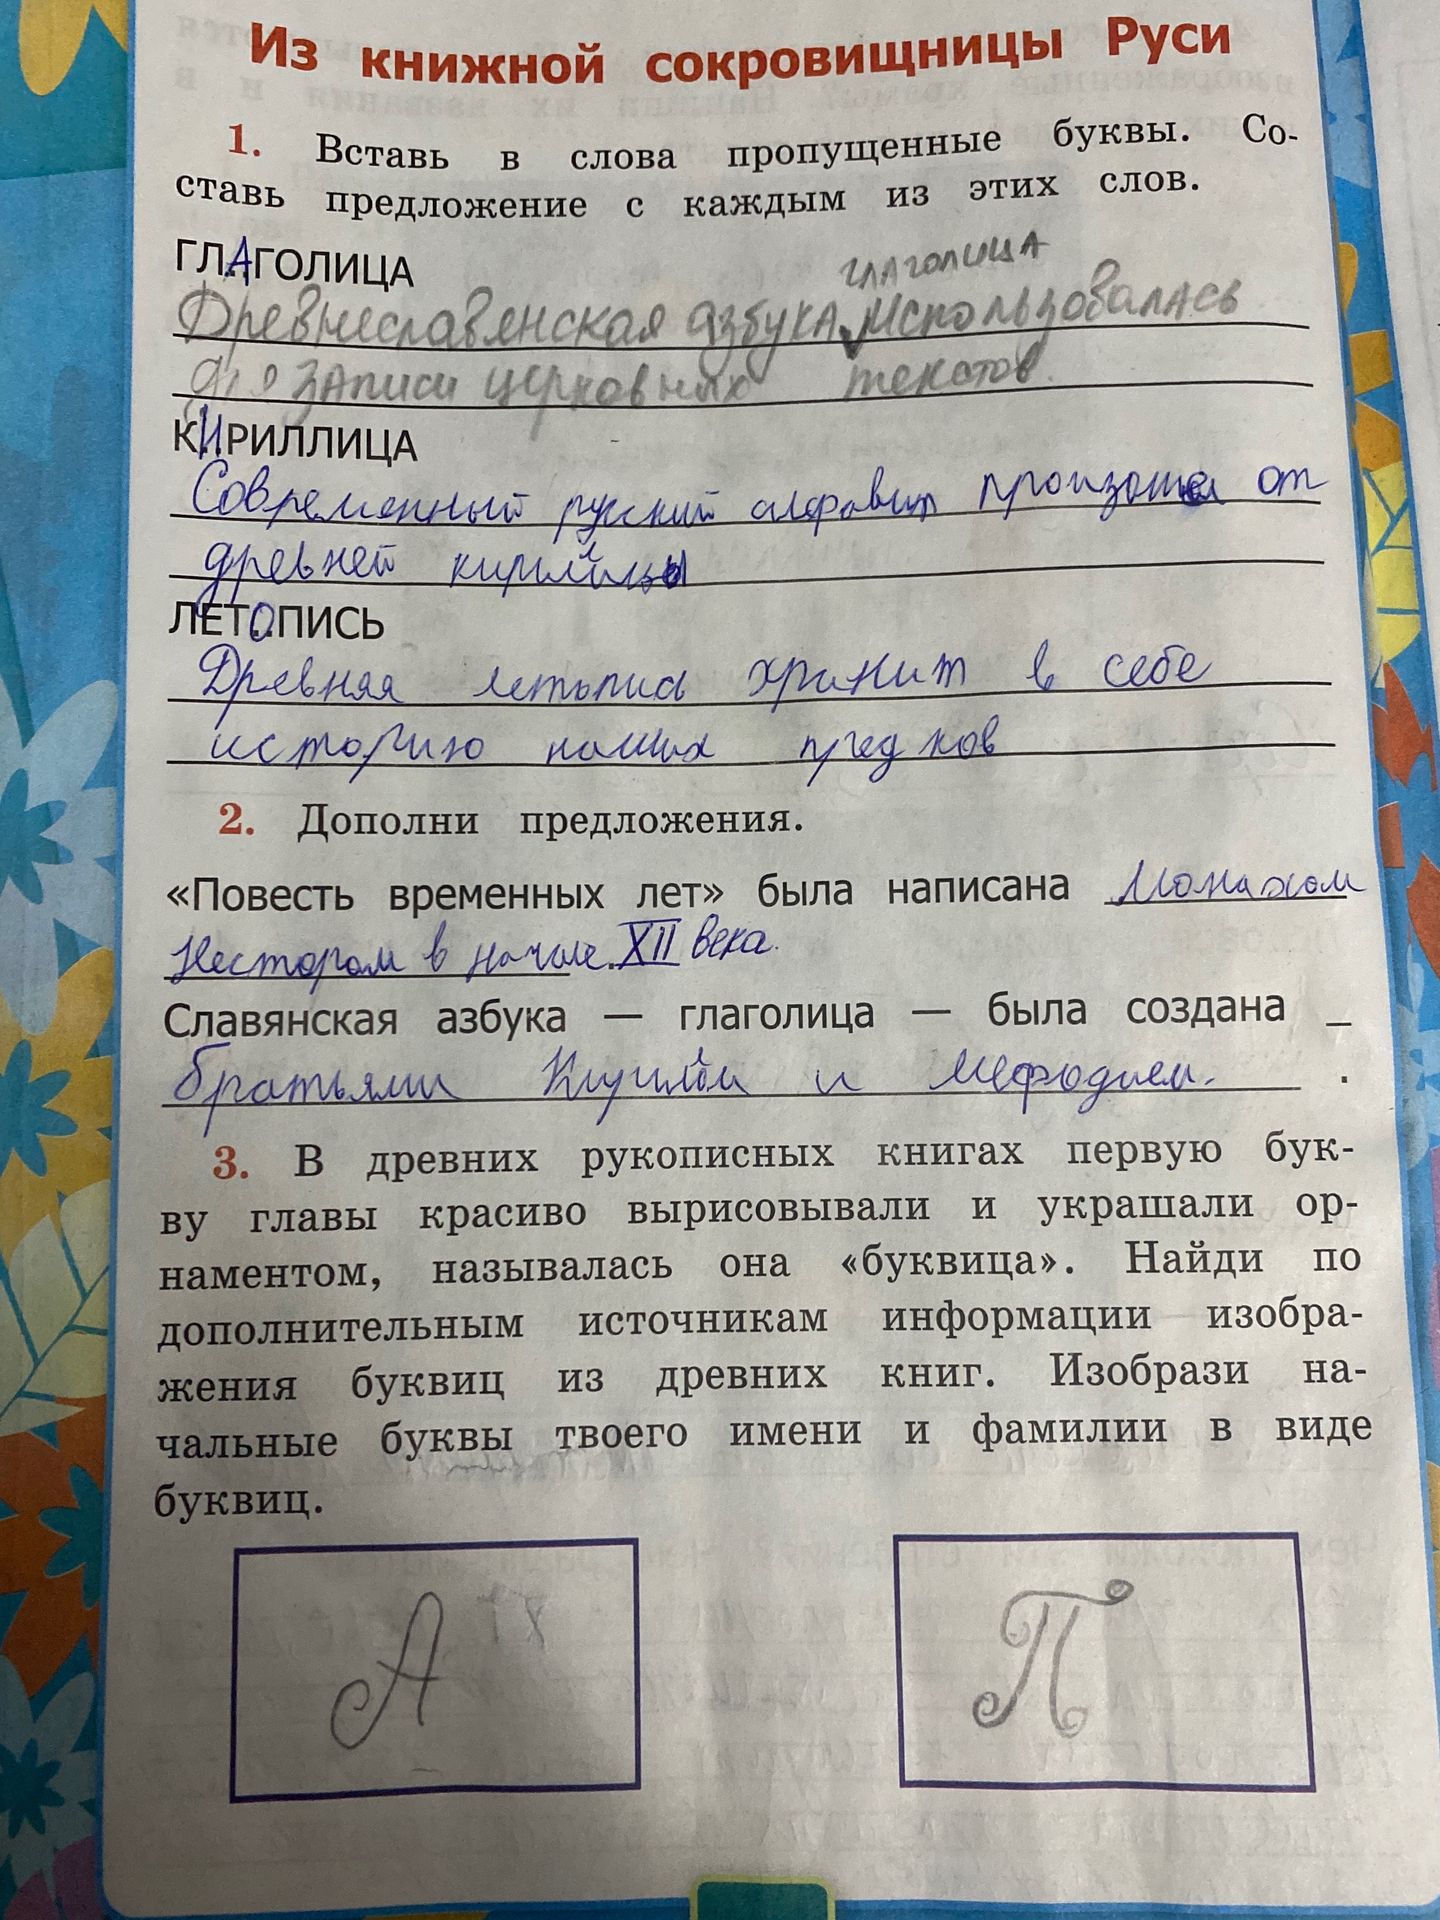 Из книжной сокровищницы Руси
1. Вставь в слова пропущенные буквы. Со-
ставь предложение с каждым из этих слов.
ГЛАГОЛИЦА
глаголица
Древнеславянская азбука использовалась
для записи церковных текстов.
КИРИЛЛИЦА
Современный русский алфавит произошел от
древней кириллицы
ЛЕТОПИСЬ
Древняя летопись хранит в себе
историю наших предков
2. Дополни предложения.
«Повесть временных лет» была написана Монахом
Нестором в начале XII века.
Славянская азбука — глаголица — была создана
братьями Кириллом и Мефодием.
3. В древних рукописных книгах первую бук-
ву главы красиво вырисовывали и украшали ор-
наментом, называлась она «буквица». Найди по
дополнительным источникам информации изобра-
жения буквиц из древних книг. Изобрази на-
чальные буквы твоего имени и фамилии в виде
буквиц.
А П